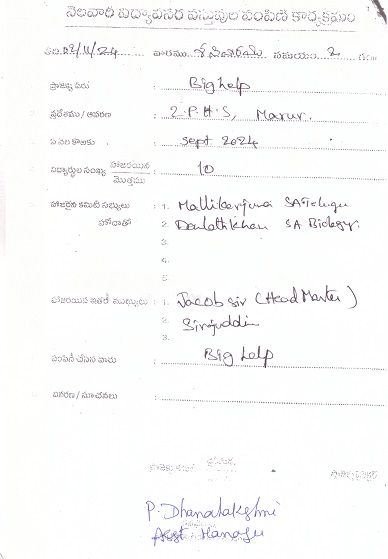 నెలవారి విద్యావసర వస్తువుల పంపిణి కార్యక్రమం
తేది 02/11/24 వారము శనివారము సమయం 2 గం॥
ప్రాజెక్టు పేరు : Big help
ప్రదేశము / ఆవరణ : Z.P.H.S, Marur.
ఏ నెల కొరకు : Sept 2024
విద్యార్థుల సంఖ్య హాజరయిన / మొత్తము : 10
హాజరైన కమిటి సభ్యులు : 1. Mallikarjuna SA Telugu
హోదాతో 2. Doulathkhan SA Biology.
3.
4.
5.
హాజరయిన ఇతర ముఖ్యులు : 1. Jacob sir (Head Master)
2. Sirajuddin
3.
పంపిణీ చేసిన వారు : Big help
వివరణ / సూచనలు :
P. Dhanalakshmi
Asst Manager